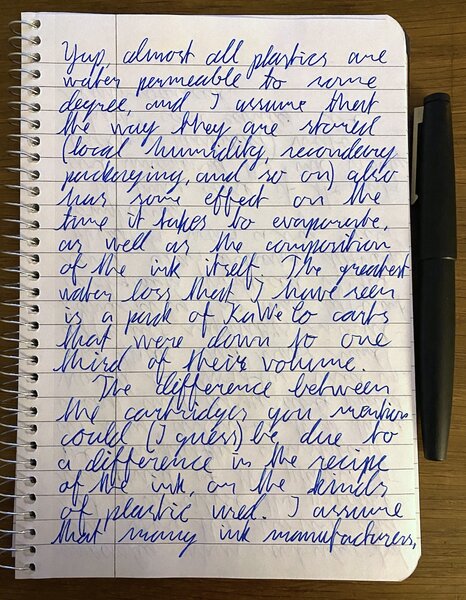 Yup, almost all plastics are
water permeable to some
degree, and I assume that
the way they are stored
(local humidity, secondary
packaging, and so on) also
has some effect on the
time it takes to evaporate,
as well as the composition
of the ink itself. The greatest
water loss that I have seen
is a pack of KaWeCo carts
that were down to one
third of their volume.
The difference between
the cartridges you mention
could (I guess) be due to
a difference in the recipe
of the ink, or the kinds
of plastic used. I assume
that many ink manufacturers,